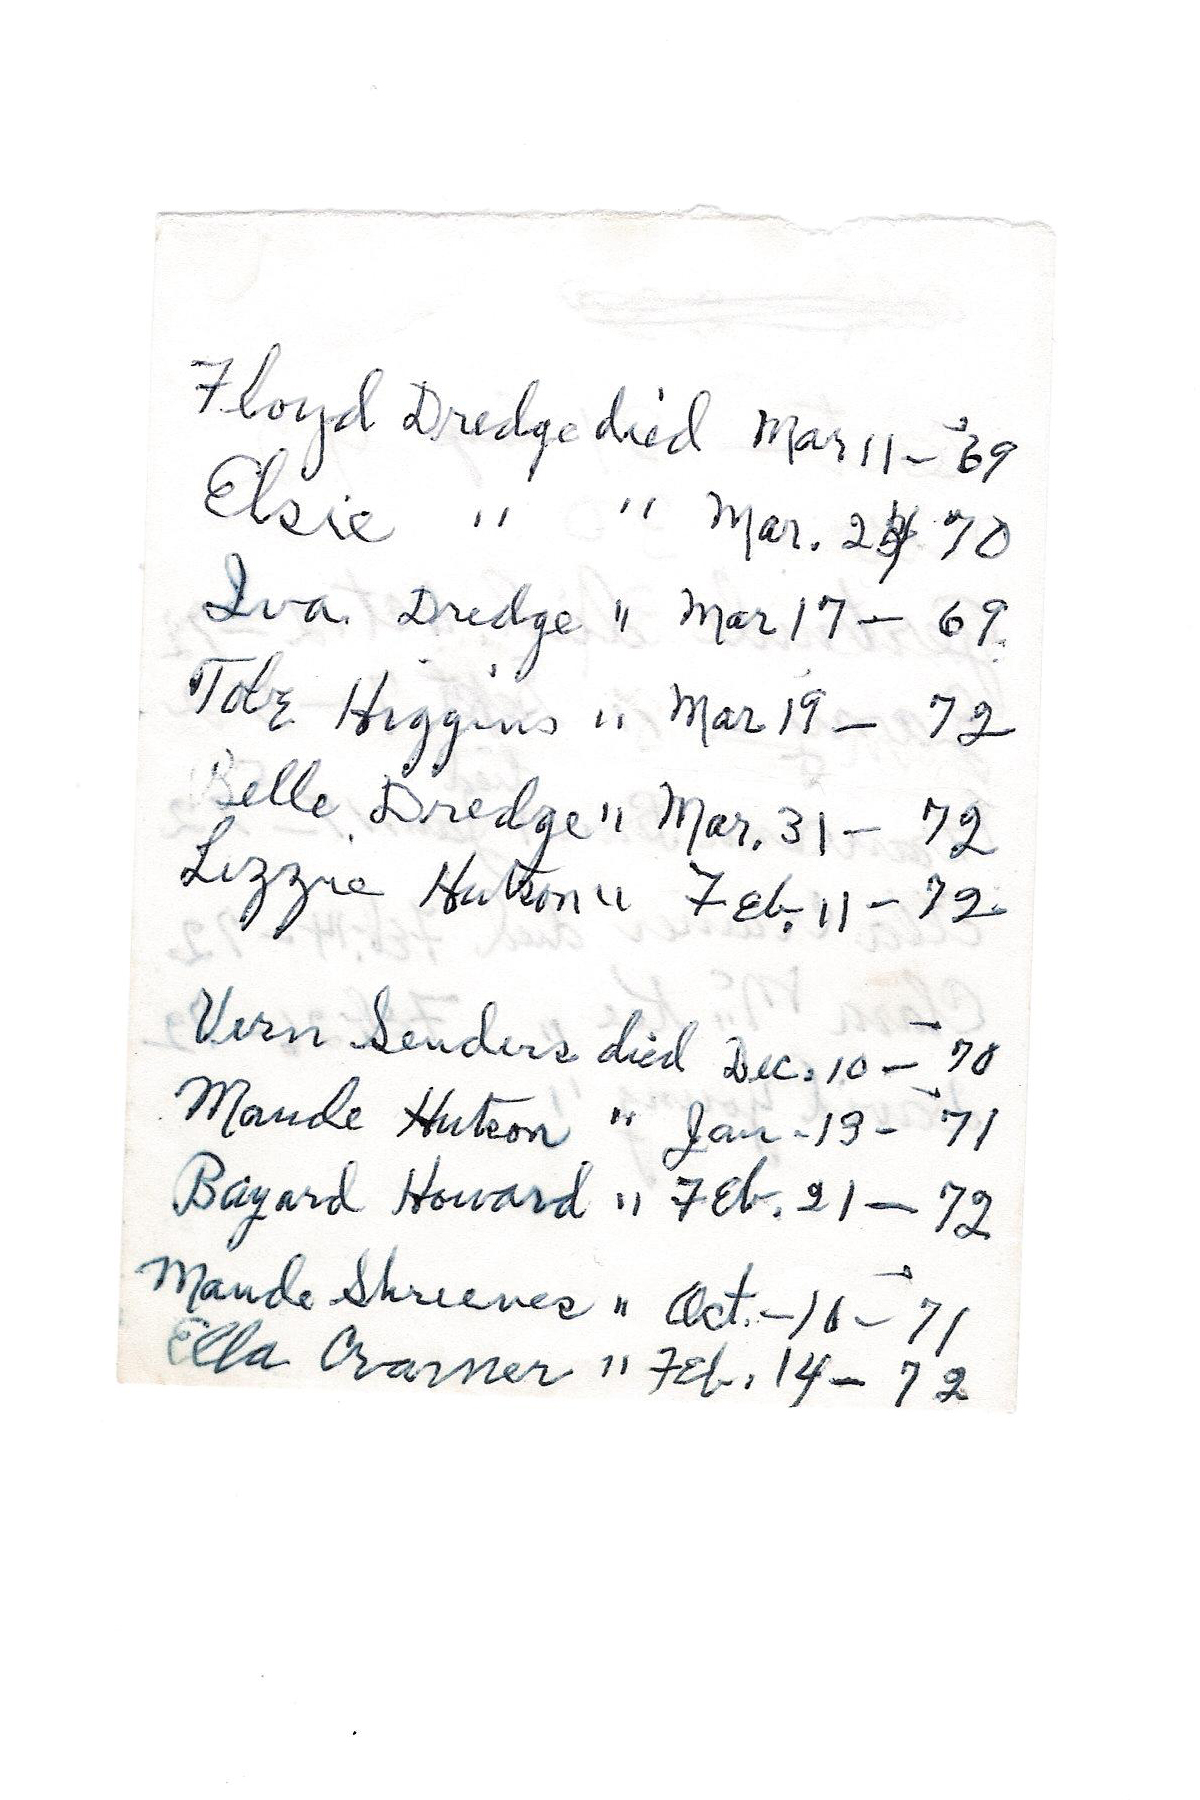 Floyd Dredge died Mar 11 - 69
Elsie " " Mar. 24 70
Iva. Dredge " Mar 17 - 69.
Tobe Higgins " Mar 19 - 72
Belle Dredge " Mar. 31 - 72
Lizzie Hutson " Feb. 11 - 72
Vern Senders died Dec. 10 - 70
Maude Hutson " Jan - 13 - 71
Bayard Howard " Feb. 21 - 72
Maude Shreeves " Oct. - 16 - 71
Ella Cramer " Feb. 14 - 72